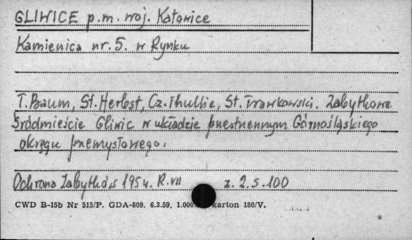 GLIWICE p.m. woj. Katowice
Kamienica nr. 5. w Rynku
T. Baum, St. Herbst, Cz. Thullie, St. Trawkowski. Zabytkowe
Śródmieście Gliwic w układzie przestrzennym Górnośląskiego
okręgu przemysłowego.
Ochrona Zabytków 1954. R. VII z. 2. s. 100
CWD B-15b Nr 515/P. GDA-809. 6.3.59. 1.000 karton 180/V.